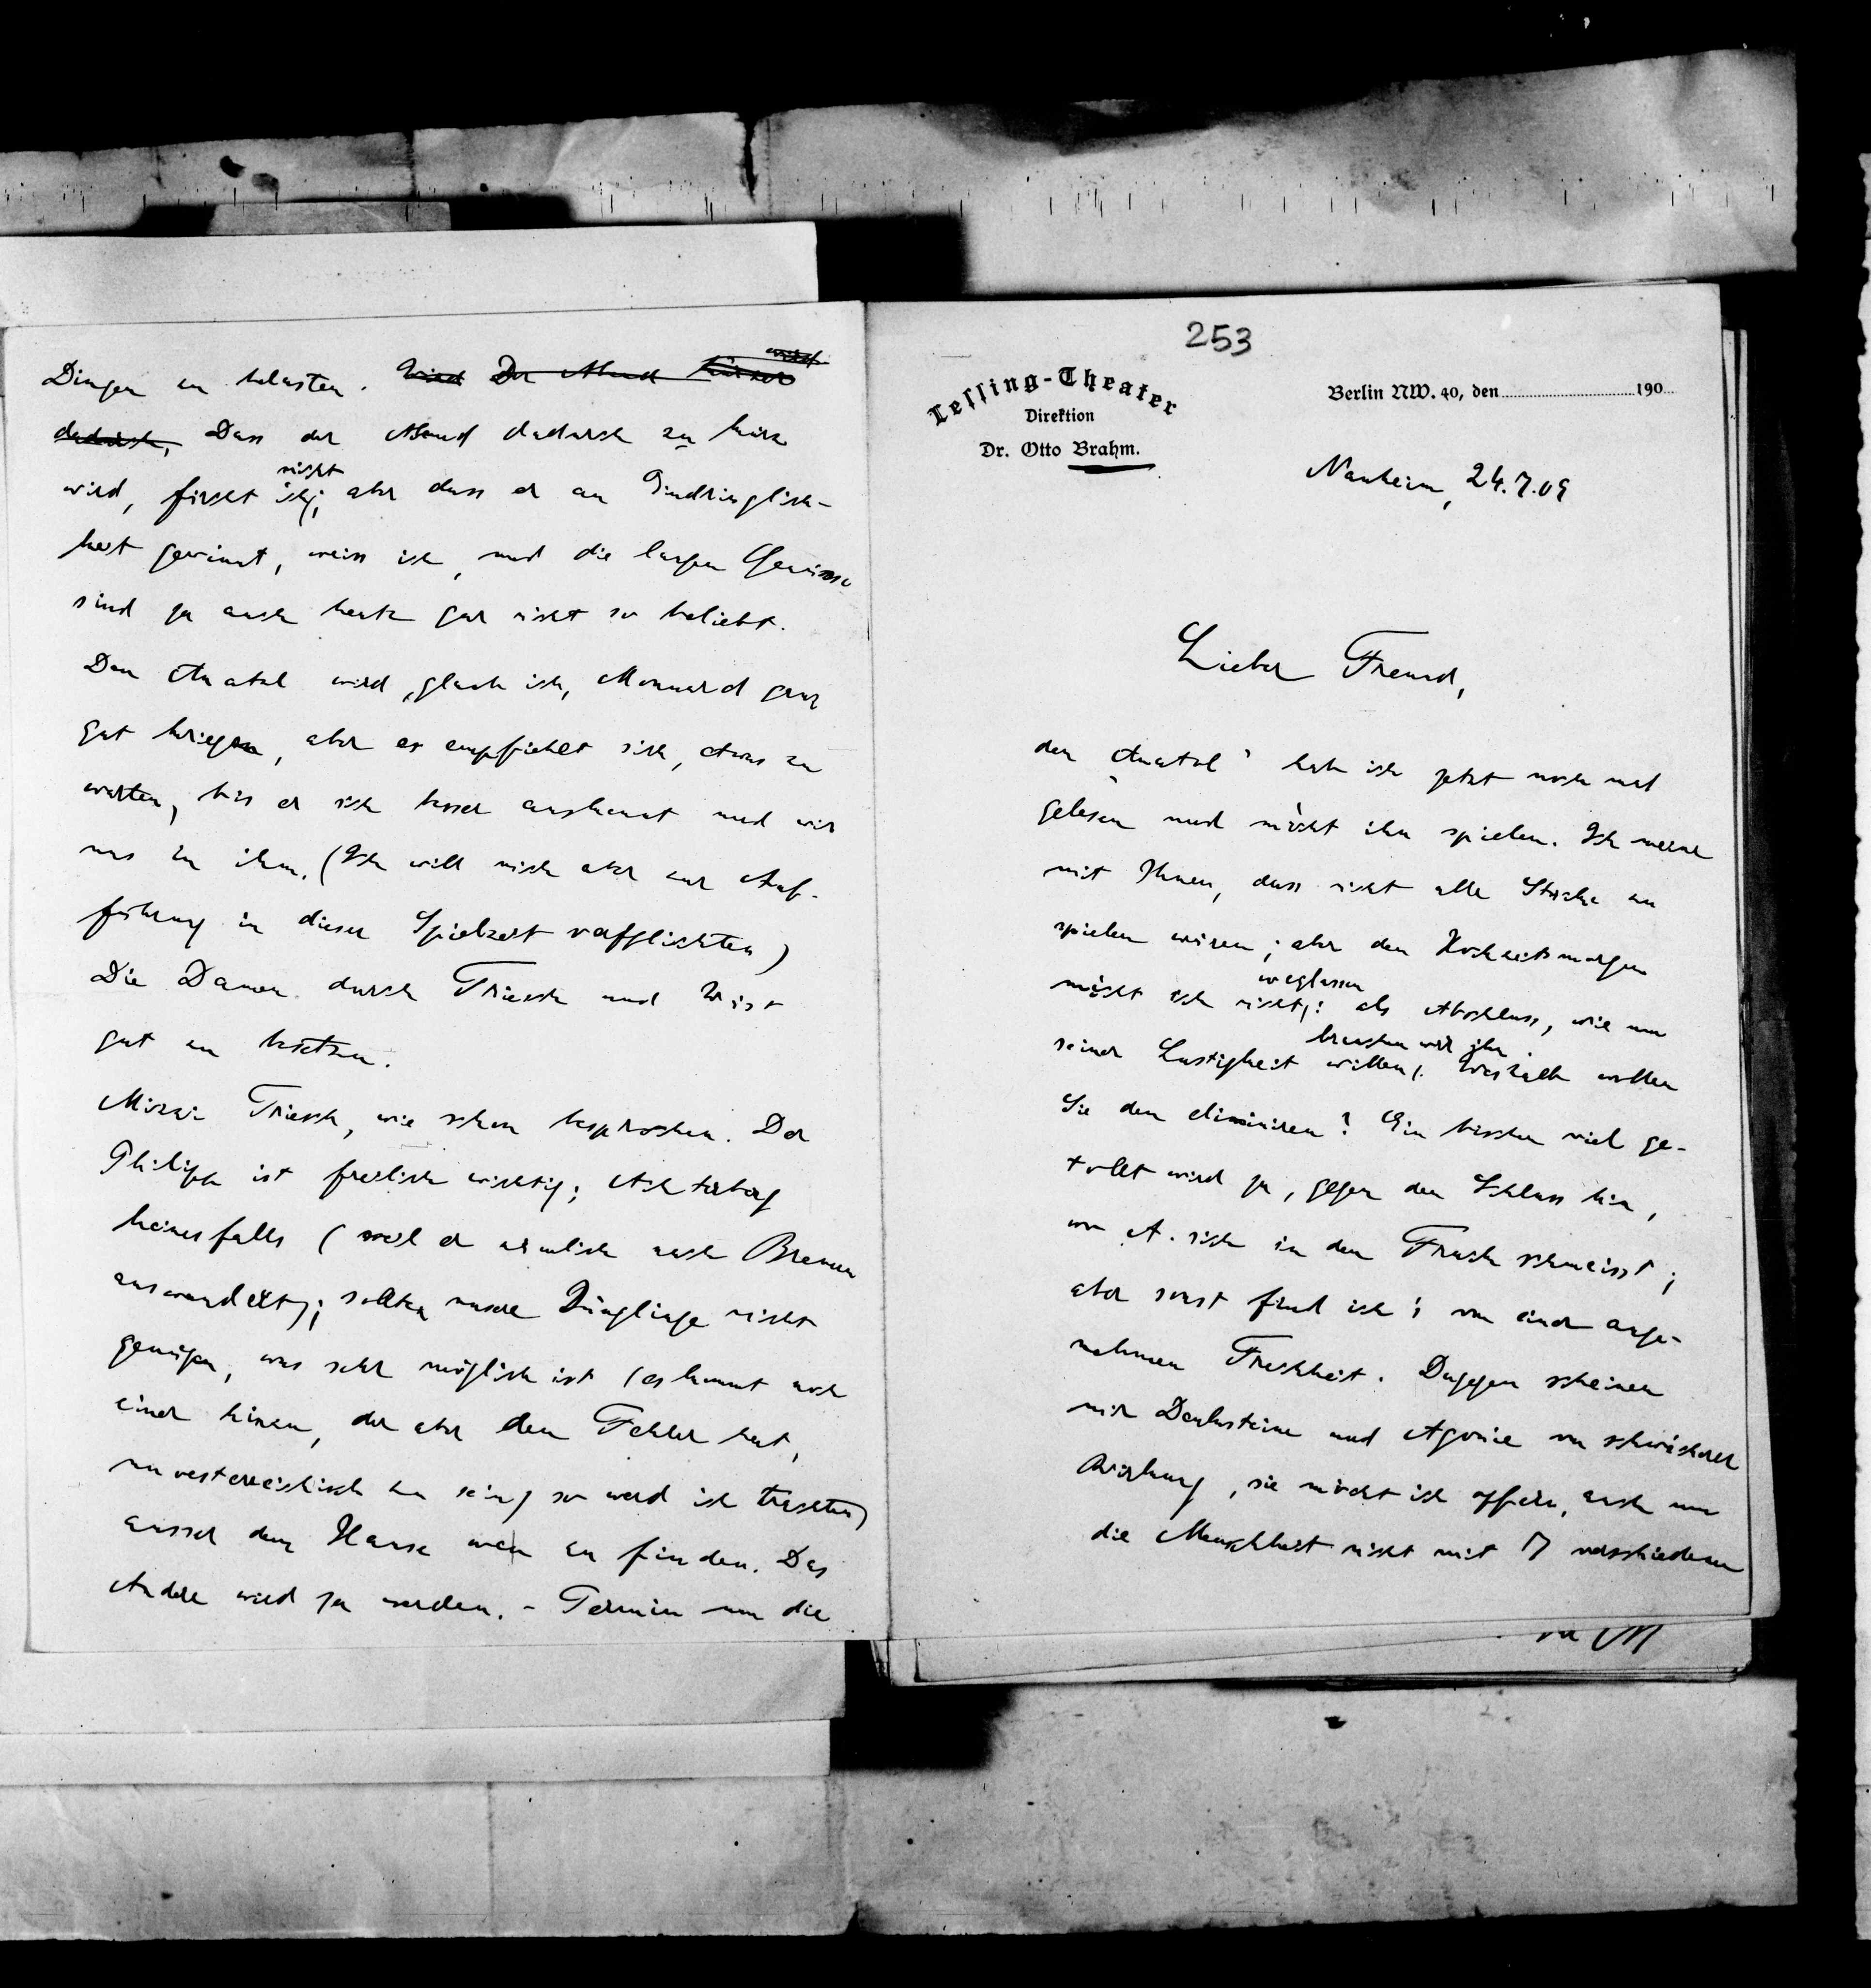 253
Lessing-Theater
Direktion
Dr. Otto Brahm.
Berlin NW. 40, den 190
Nauheim, 24.7.09
Lieber Freund,
den Anatol' hab ich jetzt noch mal
gelesen und möcht ihn spielen. Ich meine
mit Ihnen, dass nicht alle Stücke zu
spielen wären; aber den Hochzeitsmorgen
möcht ich nicht weglassen: als Abschluss, wie um
seiner Lustigkeit willen brauchen wir ihn. Weshalb wollen
Sie den eliminiren? Ein bisschen viel ge-
tollt wird ja, gegen den Schluss hin,
wo A. sich in den Frack schmeisst;
aber sonst find ich's von einer ange-
nehmen Frechheit. Dagegen scheinen
mir Denksteine und Agonie von schwächerer
Wirkung, sie möcht ich opfern, auch um
die Menschheit nicht mit 7 verschiedenen
Dingen zu belasten. Wird Der Abend kürzer wird
dadurch, Dass der Abend dadurch zu kurz
wird, fürcht ich nicht; aber dass er an Eindringlich-
keit gewinnt, weiss ich, und die langen Genüsse
sind ja auch heute gar nicht so beliebt.
Den Anatol wird, glaub ich, Monnard ganz
gut kriegen, aber es empfiehlt sich, etwas zu
warten, bis er sich besser auskennt und wir
uns in ihm. (Ich will mich aber zur Auf-
führung in dieser Spielzeit verpflichten)
Die Damen durch Triesch und
gut zu besetzen.
Mizzi Triesch, wie schon besprochen. Der
Philipp ist freilich wichtig; Achterberg
keinesfalls (weil er nämlich nach Bremen
auswandert); sollten unsere Jünglinge nicht
genügen, was sehr möglich ist (es kommt noch
einer hinzu, der aber den Fehler hat,
unoesterreichisch zu sein) so werd ich trachten,
ausser dem Hause wen zu finden. Das
Andere wird ja werden. – Termin um die